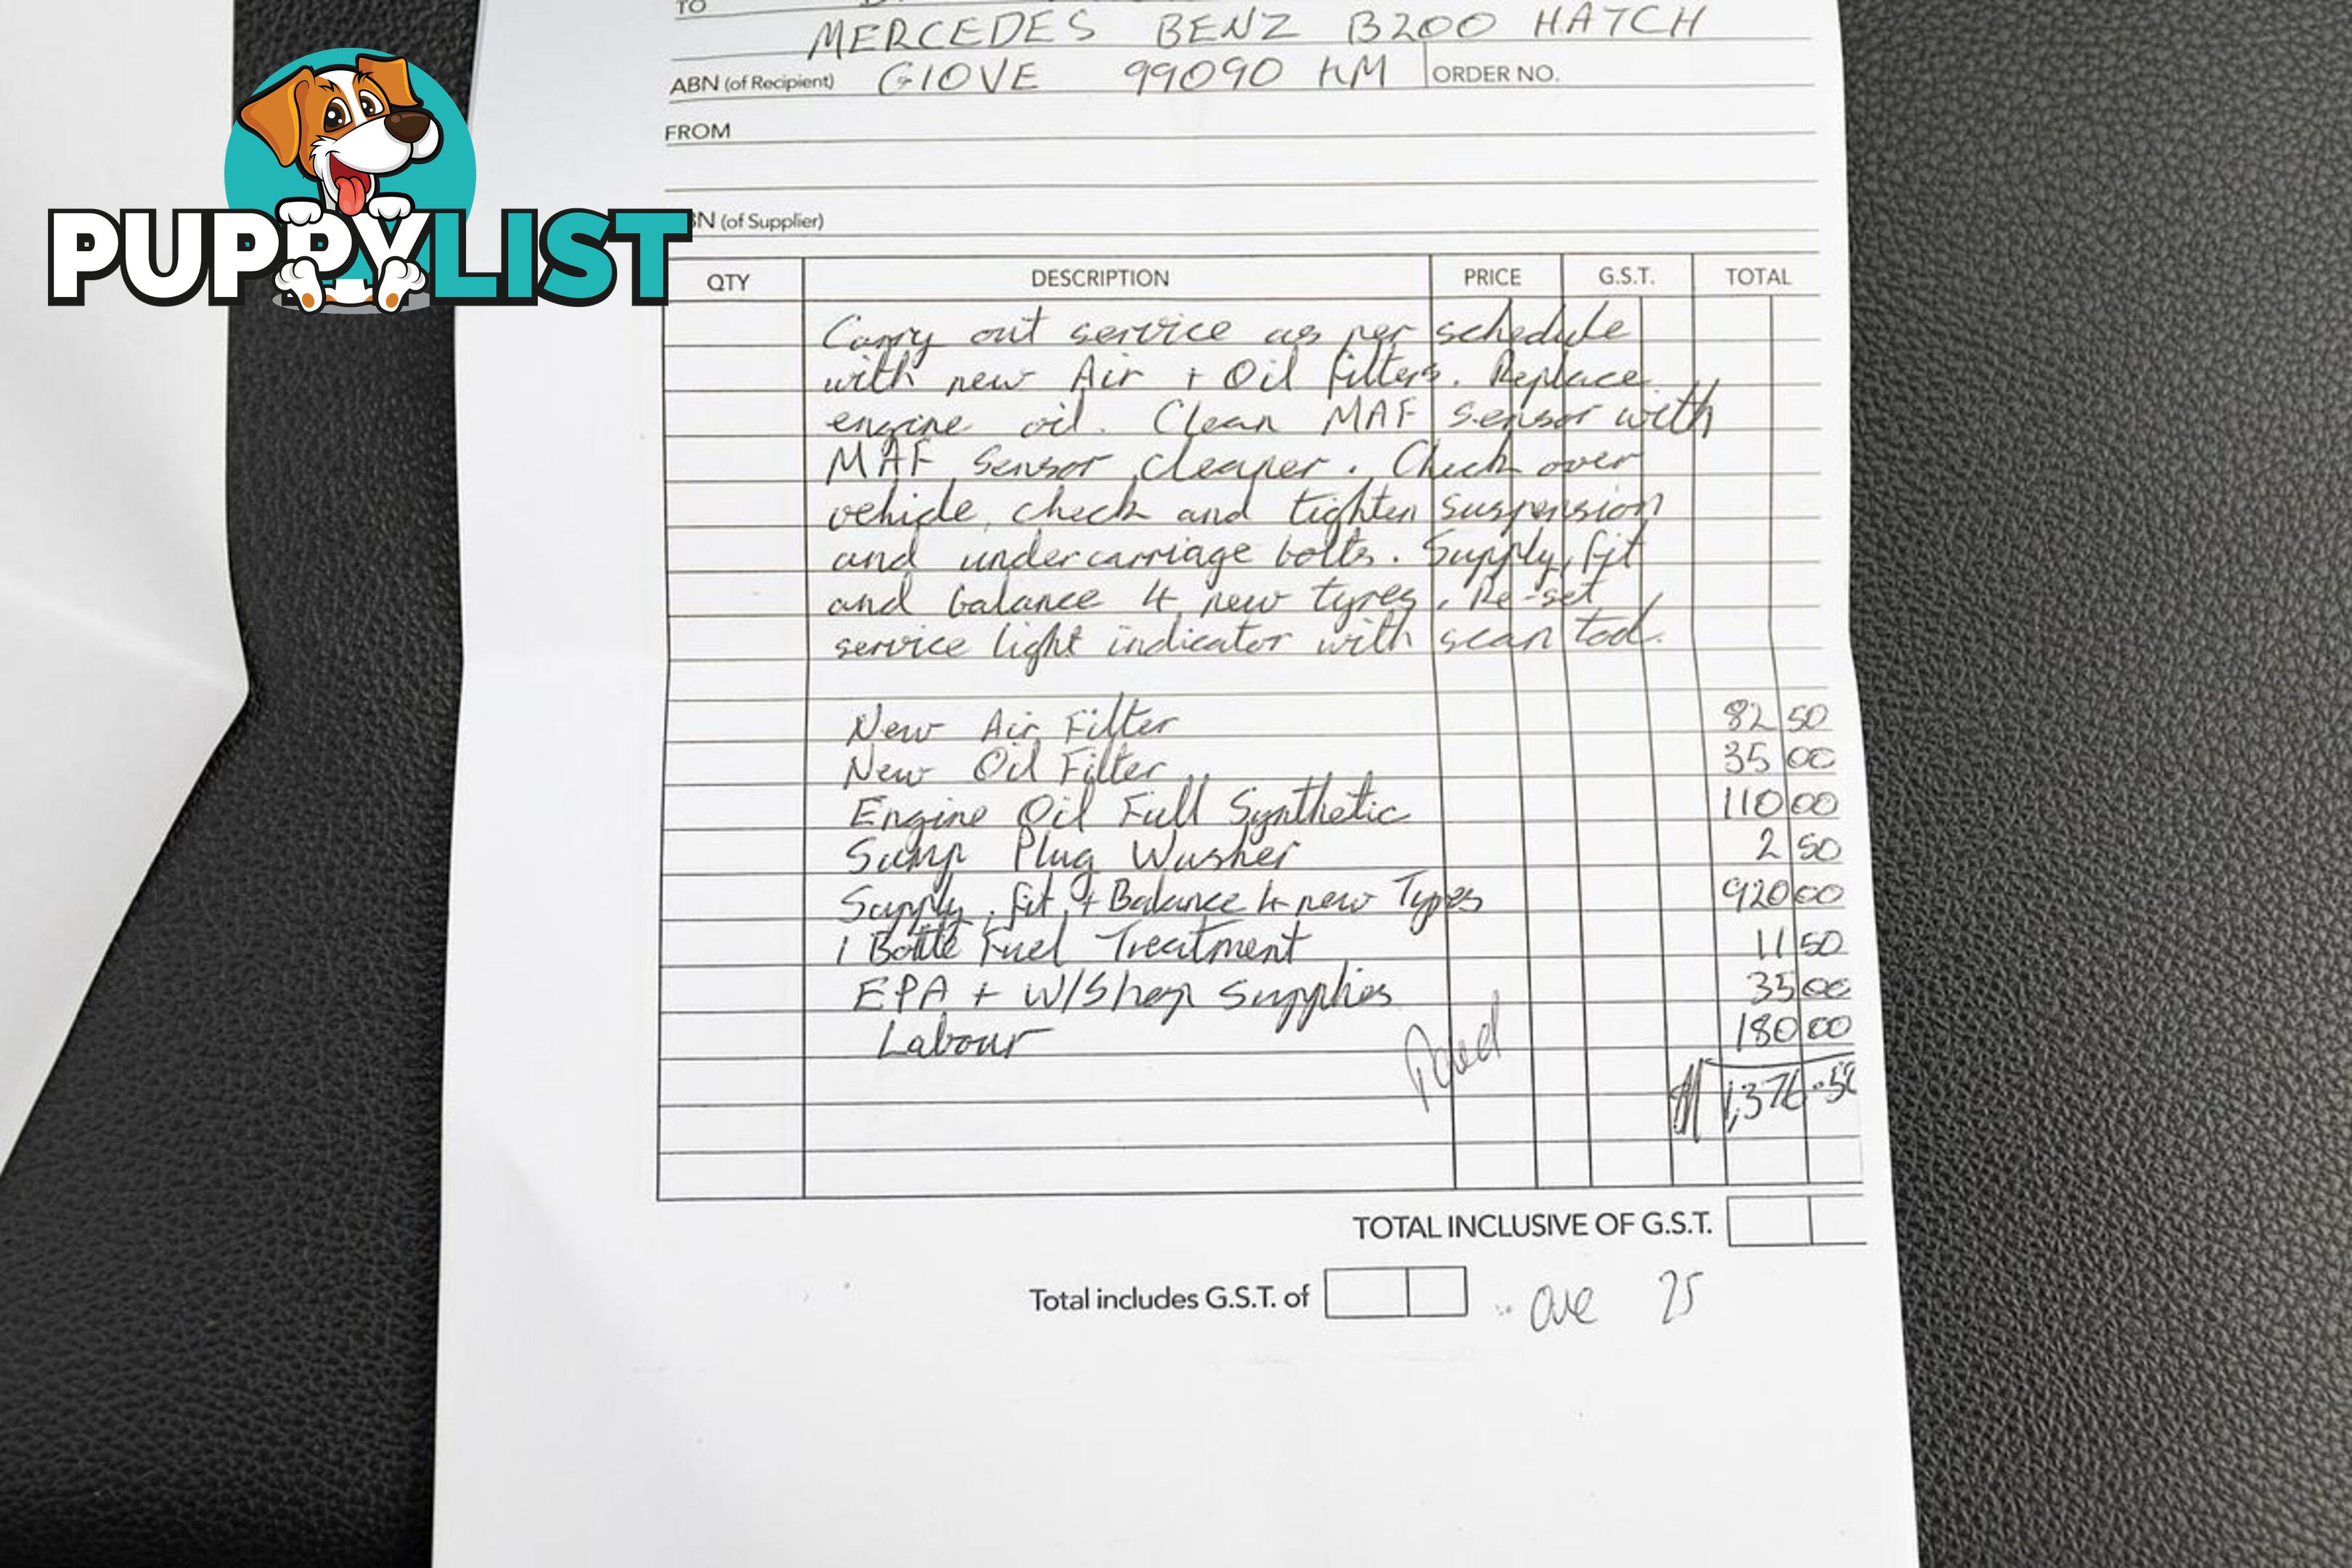 PUPPYLIST
TO
MERCEDES BENZ B200 HATCH
ABN (of Recipient) GIOVE 99090 KM ORDER NO.
FROM
BN (of Supplier)
QTY DESCRIPTION PRICE G.S.T. TOTAL
Carry out service as per schedule
with new Air + Oil filters. Replace
engine oil. Clean MAF sensor with
MAF Sensor cleaner. Check over
vehicle, check and tighten suspension
and undercarriage bolts. Supply, fit
and balance 4 new tyres. Re-set
service light indicator with scan tool.
New Air Filter 82 50
New Oil Filter 35 00
Engine Oil Full Synthetic 110 00
Sump Plug Washer 2 50
Supply, fit, + Balance 4 new Tyres 920 00
1 Bottle Fuel Treatment 11 50
EPA + W/Shop Supplies 35 00
Labour 180 00
Paid
$1,376.50
TOTAL INCLUSIVE OF G.S.T.
Total includes G.S.T. of